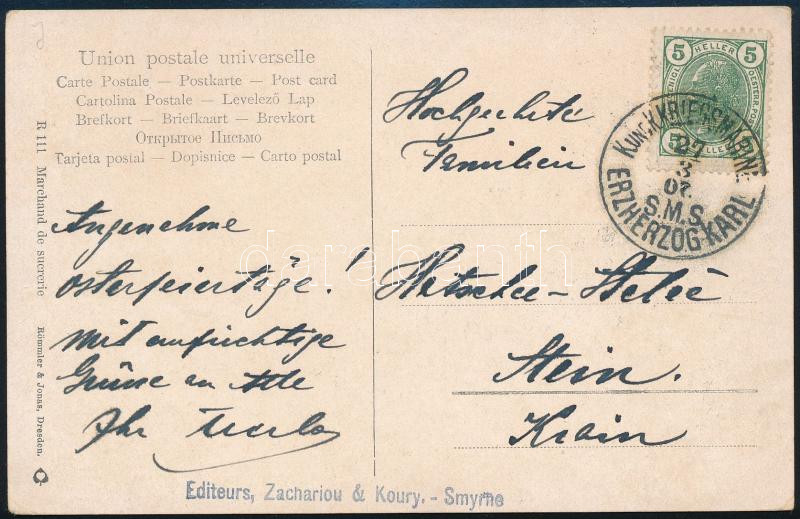 Union postale universelle
Carte Postale — Postkarte — Post card
Cartolina Postale — Levelező Lap
Brefkort — Briefkaart — Brevkort
Открытое Письмо
Tarjeta postal — Dopisnice — Carto postal
R 111 Marchand de sucrerie
Römmler & Jonas, Dresden.
Angenehme
Osterfeiertäge!
Mit aufrichtige
Grüsse an Alle
Ihr
Hochgeehrte
Familien
Stein.
Krain
5 HELLER 5
K.UND K.KRIEGSMARINE
27
3
07.
S.M.S.
ERZHERZOG KARL
Editeurs, Zachariou & Koury. - Smyrne
darabanth